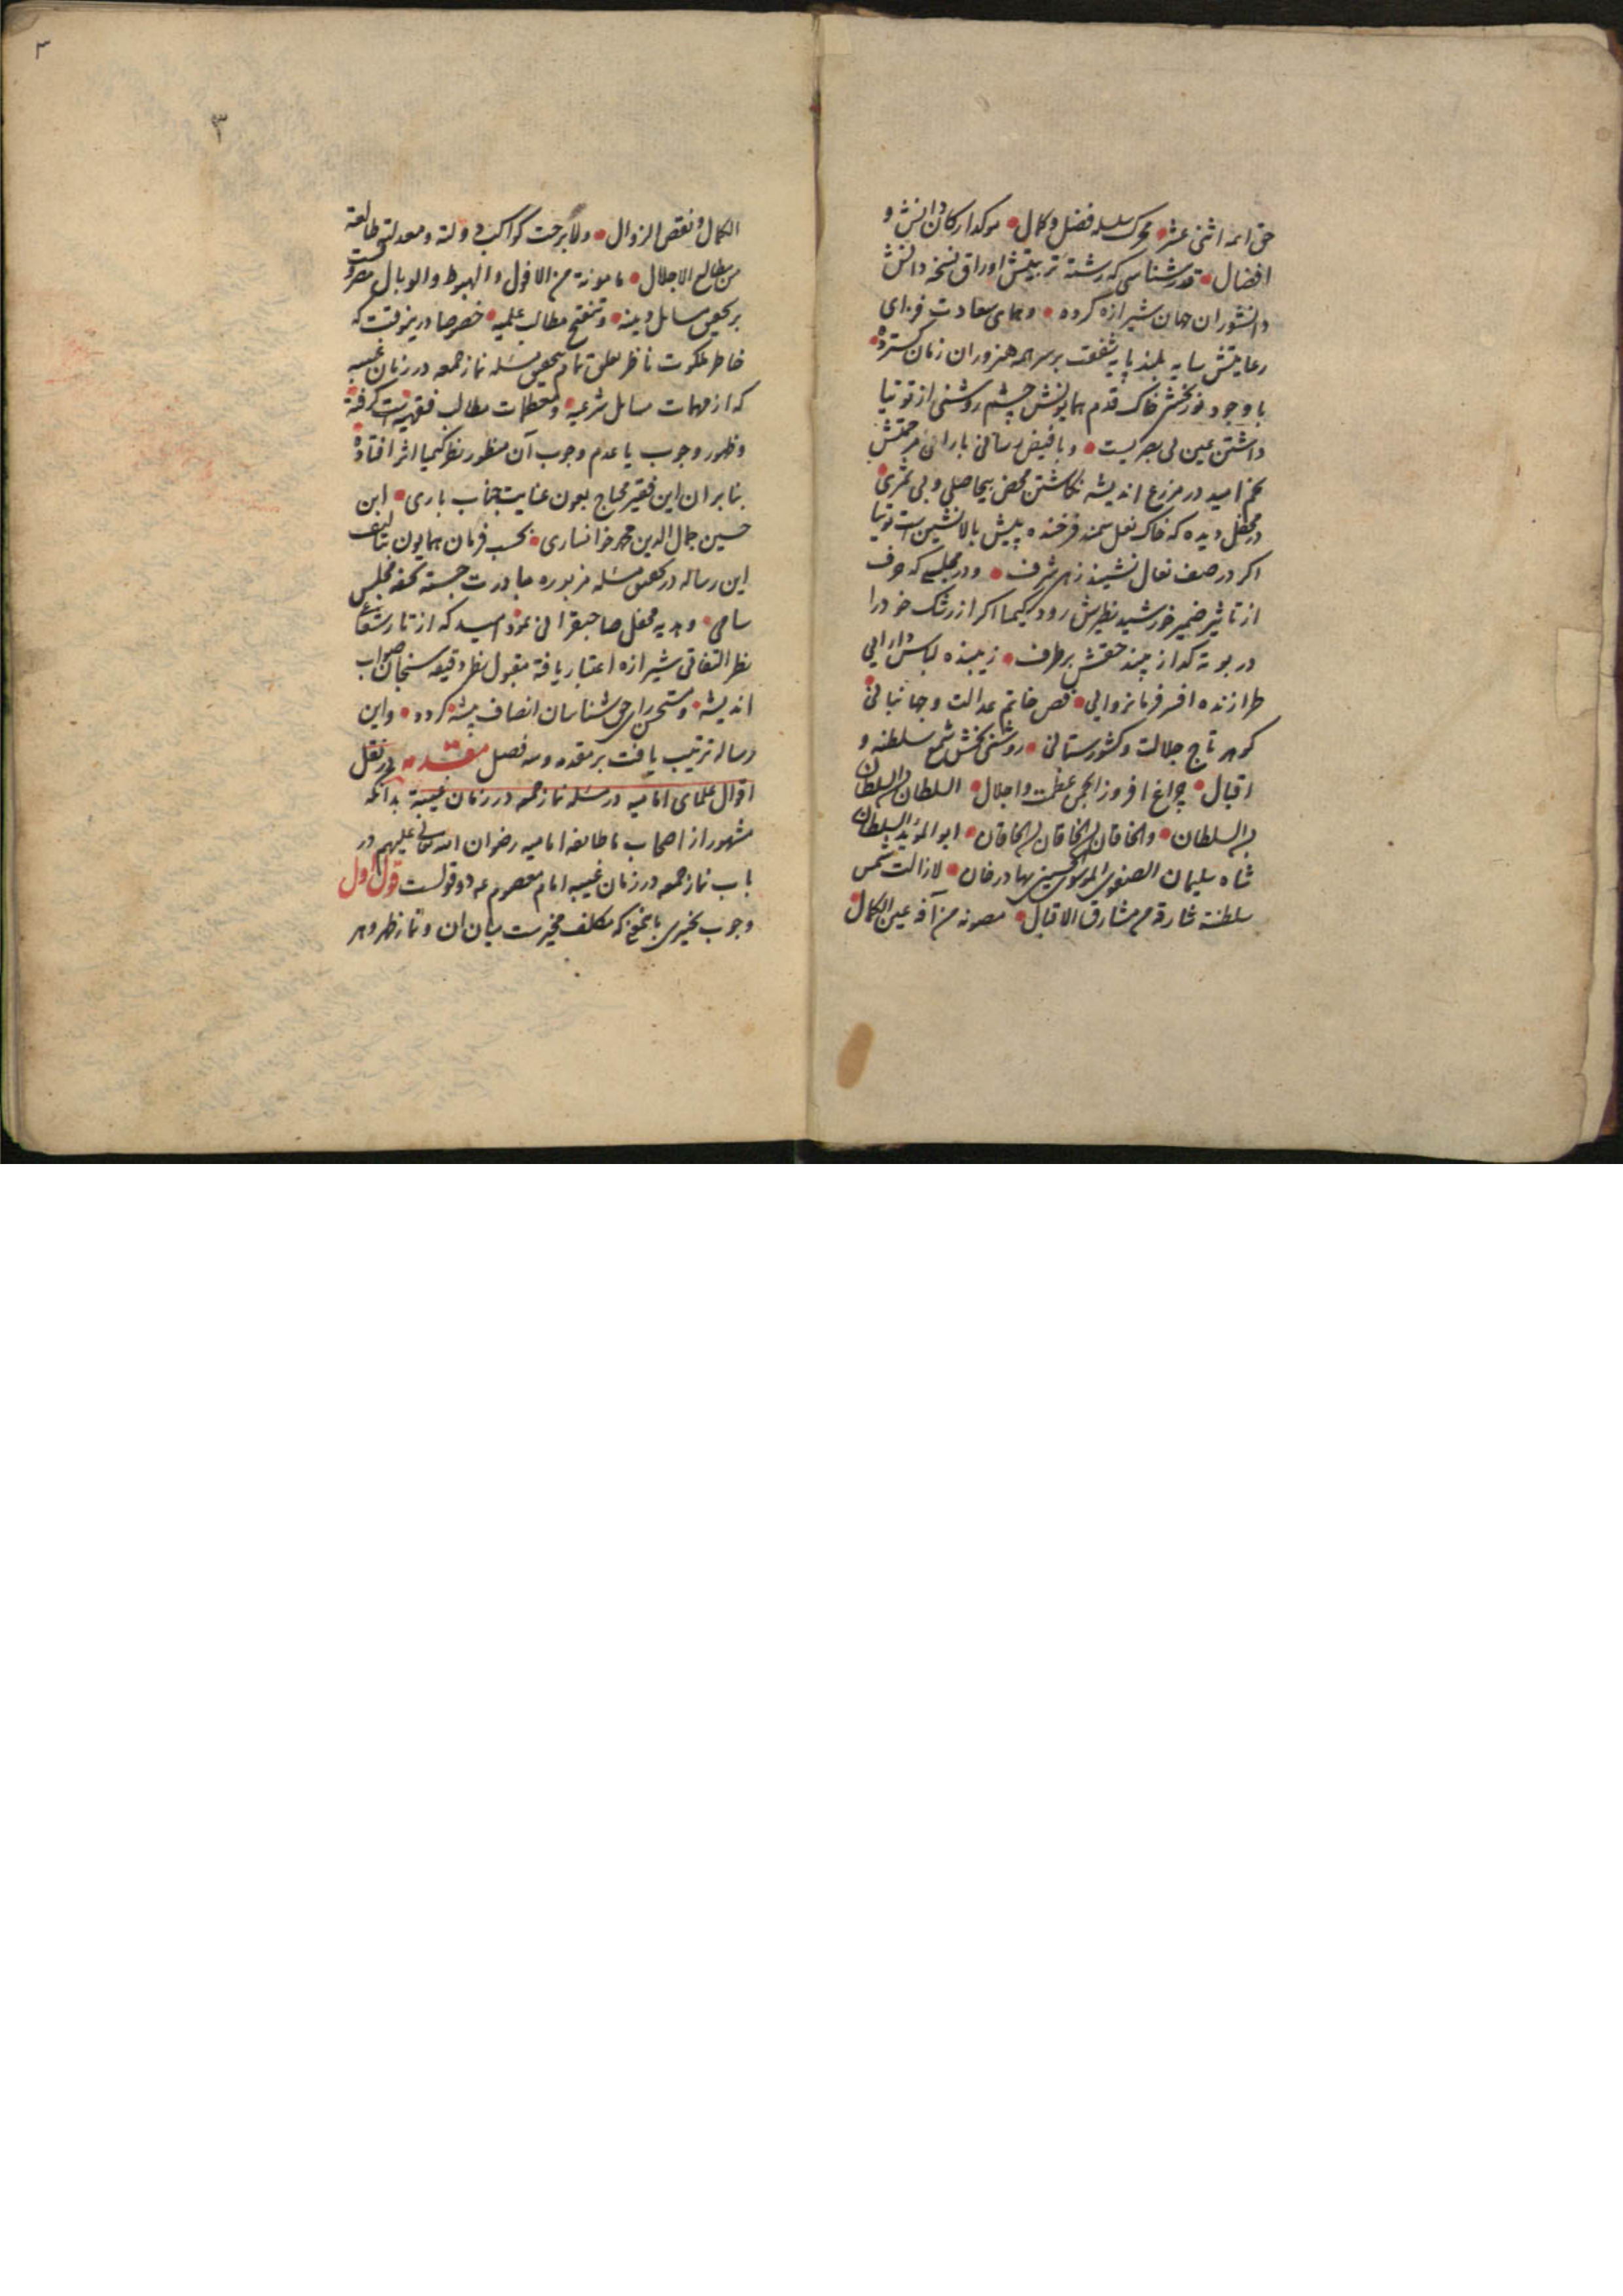 حق ائمه اثنی عشر محرک سلسله فضل و کمال موکد ارکان دانش و
افضال قدرشناسی که رشته تربیتش اوراق نسخه دانش
دانشوران جهان شیرازه کرده و همای سعادت فزای
رعایتش سایه بلند پایه شفقت بر سر همه هنروران زمان کسترده
با وجود نوربخش خاک قدم همایونش چشم روشنی از توتیا
داشتن عین بی بصریست و با فیض رسانی باران مرحمتش
تخم امید در مزرع اندیشه نکاشتن محض بیحاصلی و بی ثمری
در محفل دیده که خاک نعل سمند فرخنده پیش بالانشین است توتیا
اکر در صف نعال نشیند زهی شرف و در مجلسی که حرف
از تاثیر ضمیر خورشید نظیرش رود کیمیا اکر از رشک خود را
در بوته کداز بیند حقش بر طرف زیبنده لباس دارایی
طرازنده افسر فرمانروایی فص خاتم عدالت و جهانبانی
کوهر تاج جلالت و کشورستانی روشنی بخش شمع سلطنه و
اقبال چراغ افروز انجمن عظمت و اجلال السلطان بن السلطان
بن السلطان والخاقان بن الخاقان بن الخاقان ابو المؤید السلطان
شاه سلیمان الصفوی الموسوی الحسینی بهادرخان لازالت شمس
سلطنة شارقة من مشارق الاقبال مصونه من آفة عین الکمال
۳
۳
الکمال و نقص الزوال ولا برحت کواکب دولته و معدلته طالعة
من مطالع الاجلال مامونة من الافول والهبوط والوبال مصروفست
بر تحقیق مسایل دینیه و تنقیح مطالب علمیه خصوصا درینوقت که
خاطر ملکوت ناظر تعلق تمام بتحقیق مسئله نماز جمعه در زمان غیبت
که از مهمات مسایل شرعیه و معظمات مطالب فقهیه است کرفته
و ظهور وجوب یا عدم وجوب آن منظور نظر کیمیا اثر افتاده
بنابران این فقیر محتاج بعون عنایت جناب باری ابن
حسین جمال الدین محمد خوانساری بحسب فرمان همایون بتالیف
این رساله در تحقیق مسئله مزبوره مبادرت جسته تحفه مجلس
سامی و هدیه محفل صاحبقرانی نمود امید که از تار شعاع
نظر التفاتی شیرازه اعتبار یافته مقبول نظر دقیقه سنجان صواب
اندیشه و مستحسن رای حق شناسان انصاف پیشه کردد و این
رساله ترتیب یافت بر مقدمه و سه فصل مقدمه در نقل
اقوال علمای امامیه در مسئله نماز جمعه در زمان غیبة بدانکه
مشهور از اصحاب ما طائفه امامیه رضوان الله تعالی علیهم در
باب نماز جمعه در زمان غیبه امام معصوم ع دو قولست قول اول
وجوب تخییری باینمعنی که مکلف مخیرست میان ان و نماز ظهر و هر